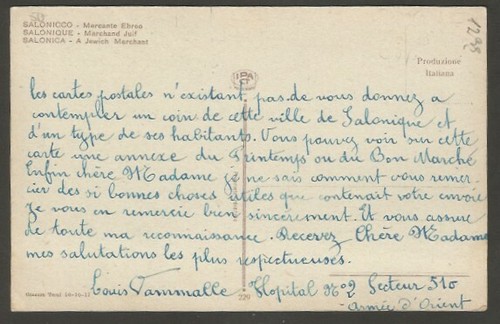 SALONICCO - Mercante Ebreo
SALONIQUE - Marchand Juif
SALONICA - A Jewich Marchant
1298
Produzione
Italiana
les cartes postales n'existant pas. de vous donnez a
contempler un coin de cette ville de Salonique et
d'un type de ses habitants. Vous pouvez voir sur cette
carte une annexe du Printemps ou du Bon Marché
Enfin chère Madame je ne sais comment vous remer-
cier des si bonnes choses utiles que contenait votre envoie
Je vous en remercie bien sincèrement. Et vous assure
de toute ma reconnaissance. Recevez Chère Madame
mes salutations les plus respectueuses.
Louis Hopital No 2 Secteur 510
Armée d'Orient
229